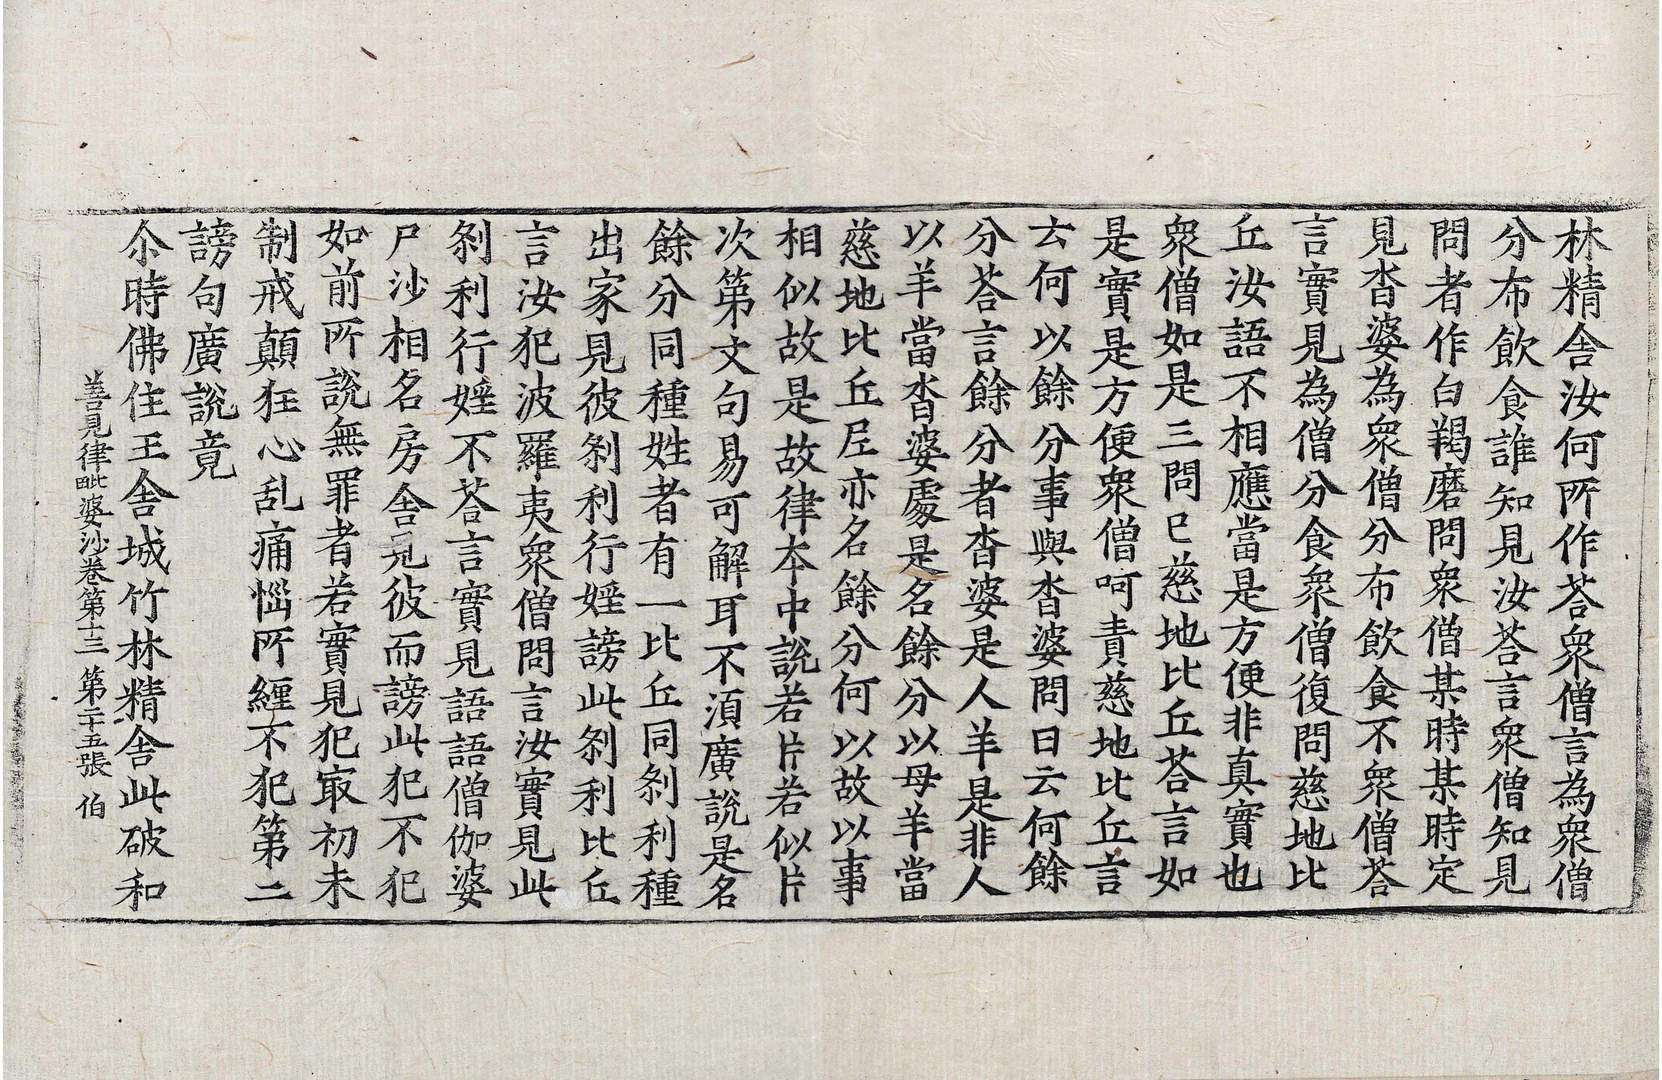 林精舎汝何所作荅衆僧言為衆僧
分布飲食誰知見汝荅言衆僧知見
問者作白羯磨問衆僧某時某時定
見沓婆為衆僧分布飲食不衆僧荅
言實見為僧分食衆僧復問慈地比
丘汝語不相應當是方便非真實也
衆僧如是三問已慈地比丘荅言如
是實是方便衆僧呵責慈地比丘言
云何以餘分事與沓婆問曰云何餘
分荅言餘分者沓婆是人羊是非人
以羊當沓婆處是名餘分以母羊當
慈地比丘尼亦名餘分何以故以事
相似故是故律本中說若片若似片
次第文句易可解耳不湏廣說是名
餘分同種姓者有一比丘同刹利種
出家見彼刹利行婬謗此刹利比丘
言汝犯波羅夷衆僧問言汝實見此
刹利行婬不荅言實見語語僧伽婆
尸沙相名房舎見彼而謗此犯不犯
如前所說無罪者若實見犯㝡初未
制戒顛狂心乱痛惱所纒不犯第二
謗句廣說竟
尒時佛住王舎城竹林精舎此破和
善見律毗婆沙卷第十三 第二十五張 伯